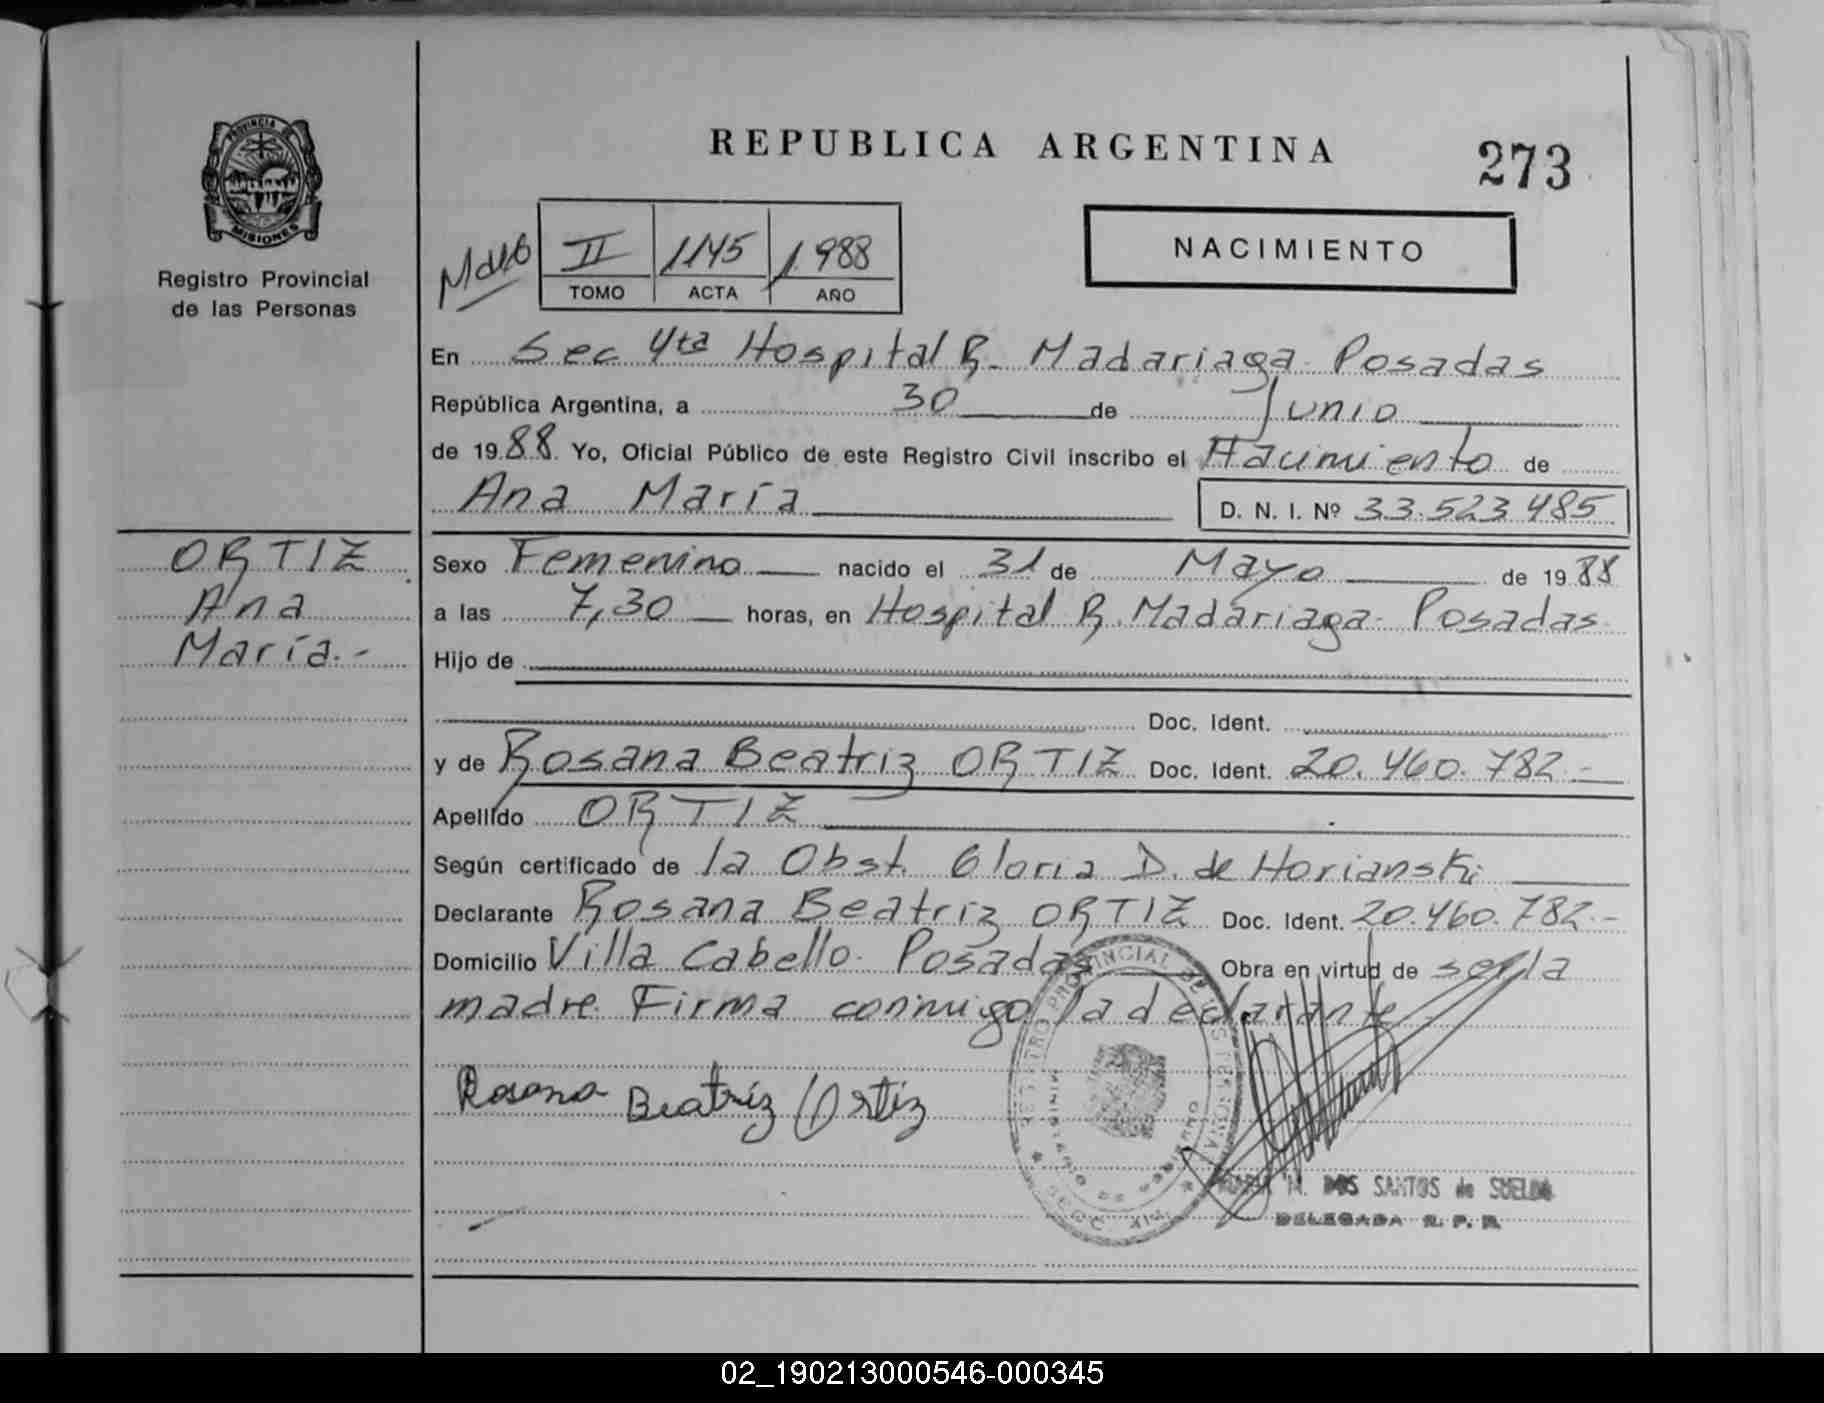 PROVINCIA DE
MISIONES
Registro Provincial
de las Personas
REPUBLICA ARGENTINA
273
NACIMIENTO
Mayo
II 1145 1988
TOMO ACTA AÑO
En Sec 4ta Hospital R. Madariaga. Posadas
República Argentina, a 30 de Junio
de 1988 Yo, Oficial Público de este Registro Civil inscribo el Nacimiento de
Ana María D. N. I. Nº 33.523.485
ORTIZ
Ana
María.-
Sexo Femenino nacido el 31 de Mayo de 1988
a las 7,30 horas, en Hospital R. Madariaga. Posadas.
Hijo de
Doc. Ident.
y de Rosana Beatriz ORTIZ Doc. Ident. 20.460.782.-
Apellido ORTIZ
Según certificado de la Obst. Gloria D. de Horianski
Declarante Rosana Beatriz ORTIZ Doc. Ident. 20.460.782.-
Domicilio Villa Cabello. Posadas Obra en virtud de ser la
madre. Firma conmigo la declarante
Rosana Beatriz Ortiz
REGISTRO PROVINCIAL DE LAS PERSONAS
MINISTERIO DE GOBIERNO
M. DOS SANTOS de SUELDO
DELEGADA R. P. P.
02_190213000546-000345